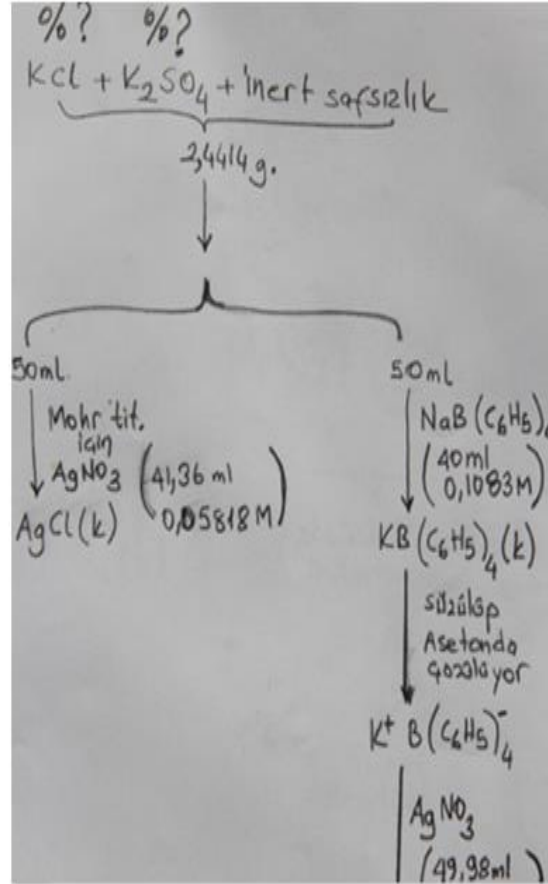 %? %?
KCl + K₂SO₄ + inert safsızlık
2,4414 g.
50ml
Mohr tit.
için
AgNO₃ (41,36 ml
0,05818 M)
AgCl(k)
50ml
NaB(C₆H₅)₄
(40ml
0,1083M
KB(C₆H₅)₄(k)
süzülüp
Asetonda
çözülüyor
K⁺ B(C₆H₅)₄⁻
AgNO₃
(49,98ml